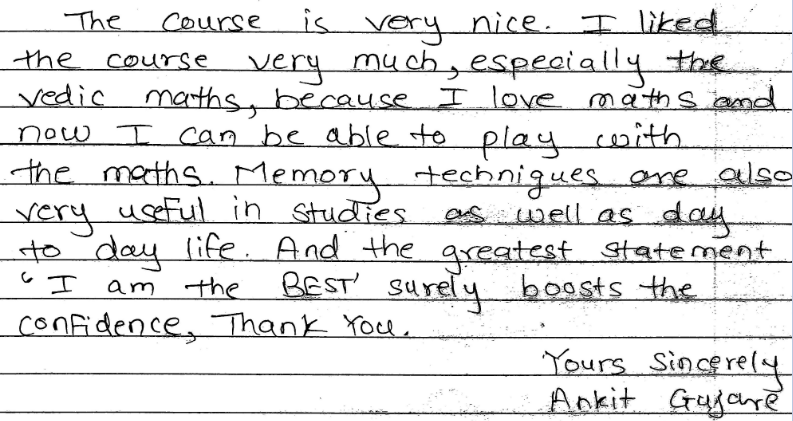 The course is very nice. I liked
the course very much, especially the
vedic maths, because I love maths and
now I can be able to play with
the maths. Memory techniques are also
very useful in studies as well as day
to day life. And the greatest statement
'I am the BEST' surely boosts the
confidence, Thank You.
Yours Sincerely
Ankit Gujare